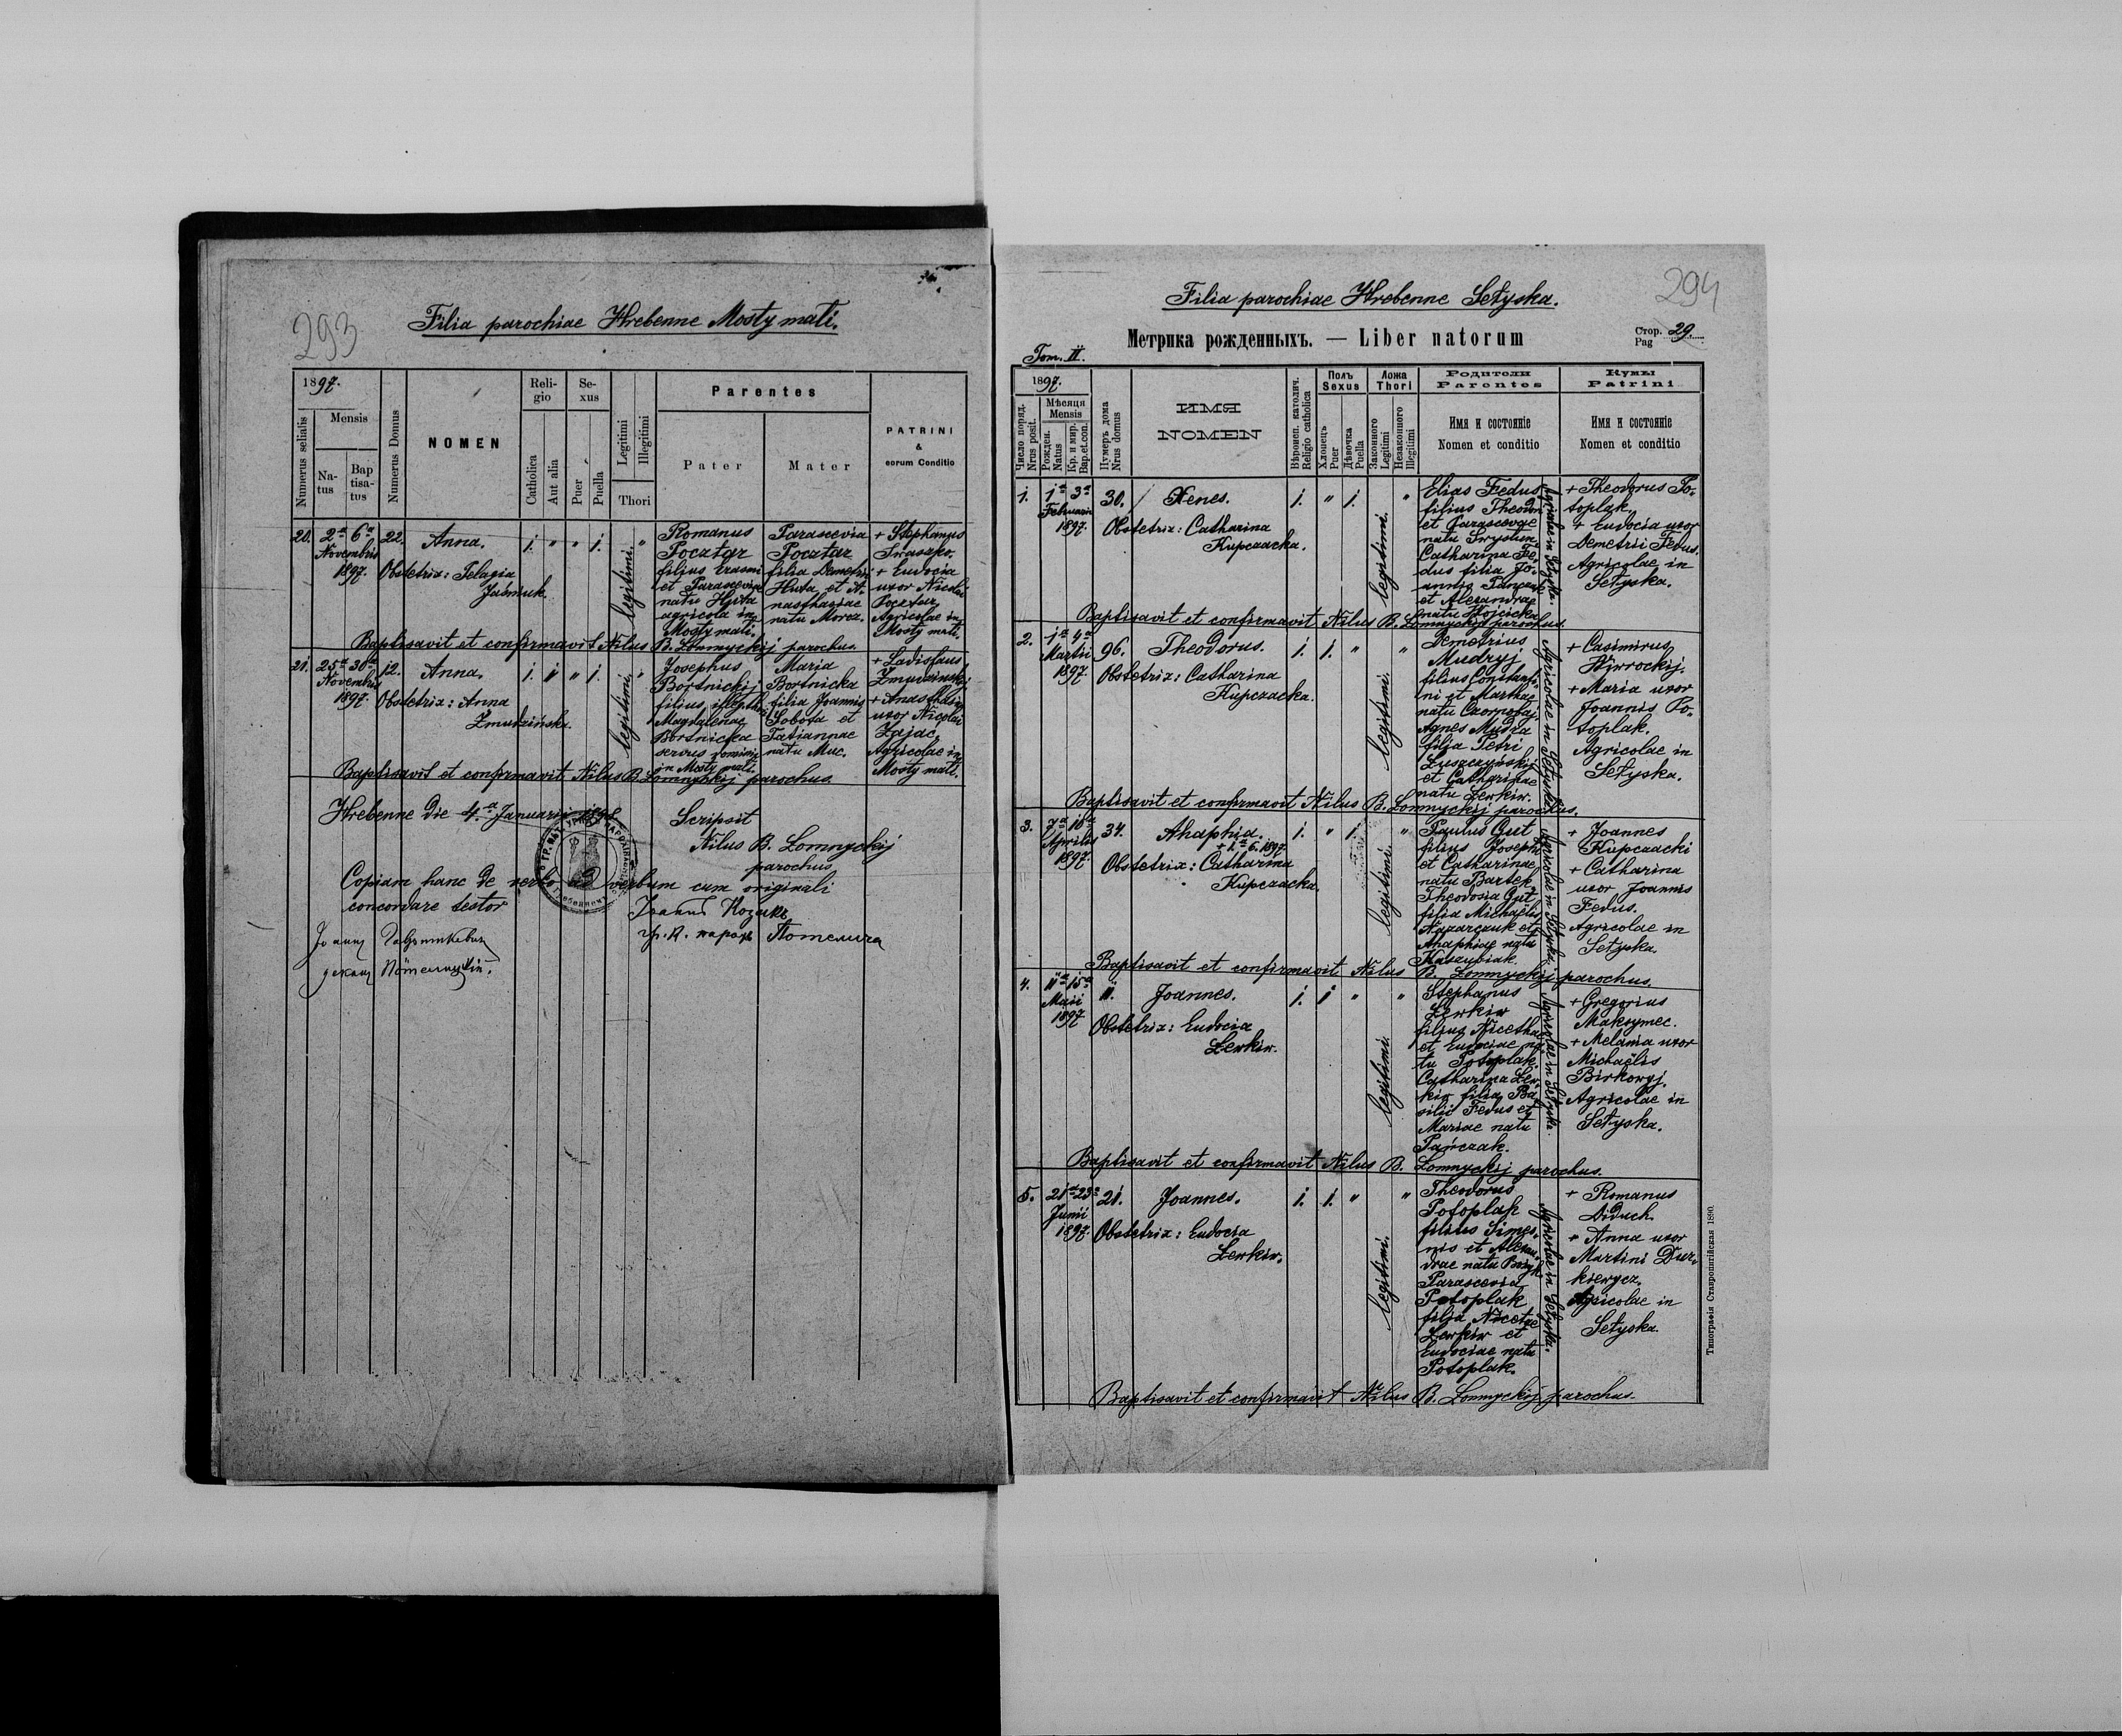 293
Filia parochiae Hrebenne Mosty mali.
1897.
Numerus serialis
Mensis
Natus
Bap
tisa-
tus
Numerus Domus
NOMEN
Reli-
gio
Catholica
Aut alia
Se-
xus
Puer
Puella
Legitimi
Illegitimi
Thori
Parentes
Pater
Mater
PATRINI
&
eorum Conditio
20. 2a 6a 22. Anna. 1. " " 1. legitimi. "
Novembris
1897. Obstetrix: Pelagia
Jaśmuk.
Romanus
Pocztar
filius Erasmi
et Parasceviae
natu Huta
agricola in
Mosty mali.
Parascevia
Pocztar
filia Demetrii
Huta et A-
nasthasiae
natu Morcz.
+ Stephanus
Iwaszko.
+ Eudocia
uxor Nicolai
Pocztar
Agricolae in
Mosty mali.
Baptisavit et confirmavit Nilus B. Lomnyckij parochus.
21. 25a 30a 12. Anna. 1. 1 " 1. legitimi. "
Novembris
1897. Obstetrix: Anna
Zmudzińska.
Josephus
Bortnickij
filius illegthi
Magdalenae
Bortnicka
servus domini
in Mosty mali.
Maria
Bortnicka
filia Joannis
Sobota et
Tatiannae
natu Muc.
+ Ladislaus
Zmudzinski
+ Anasthasia
uxor Nicolai
Zając.
Agricolae in
Mosty mali.
Baptisavit et confirmavit Nilus B. Lomnyckij parochus.
Hrebenne die 4.a Januarii 1898
Scripsit
Nilus B. Lomnyckij
parochus
Copiam hanc de verbo ad verbum cum originali
concordare testor
гр. к. парох Потелича
294
Filia parochiae Hrebenne Sełyska.
Метрика рожденныхъ. — Liber natorum
Стор.
Pag 29.
Tom. II.
1897.
Число поряд.
Nrus posit.
Мѣсяця
Mensis
Рожден.
Natus
Кр. и мир.
Bap.et.con.
Нумеръ дома
Nrus domus
ИМЯ
NOMEN
Вѣроисп. католич.
Religio catholica
Полъ
Sexus
Хлопецъ
Puer
Дѣвочка
Puella
Ложа
Thori
Законного
Legitimi
Незаконного
Illegitimi
Родители
Parentes
Имя и состояніе
Nomen et conditio
Кумы
Patrini
Имя и состояніе
Nomen et conditio
1. 1a 3a 30. Xenes. 1. " 1. legitimi. "
Februarii
1897. Obstetrix: Catharina
Kupczacka.
Elias Fedus
filius Theodori
et Parascevae
natu Iwystun.
Catharina Fe-
dus filia Jo-
annis Panczak
et Alexandrae
natu Wojcicka
Agricolae in Sełyska.
+ Theodorus Po-
toplak.
+ Eudocia uxor
Demetrii Fedus.
Agricolae in
Sełyska.
Baptisavit et confirmavit Nilus B. Lomnyckij parochus.
2. 1a 4a 96. Theodorus. 1. 1. " legitimi. "
Martii
1897. Obstetrix: Catharina
Kupczacka.
Demetrius
Mudryj
filius Constanti-
ni et Marthae
natu Czornopaj.
Agnes Mudra
filia Petri
Luszczynskij
et Catharinae
natu Lewkiw.
Agricolae in Sełyska.
+ Casimirus
+ Maria uxor
Joannis Po-
toplak.
Agricolae in
Sełyska.
Baptisavit et confirmavit Nilus B. Lomnyckij parochus.
3. 7a 10a 34. Ahaphia. 1. " 1. legitimi. "
Aprilis + 1.a 6. 1897.
1897. Obstetrix: Catharina
Kupczacka.
Paulus Gut
filius Josephi
et Catharinae
natu Bartep.
Theodosia Gut
filia Michaëlis
Nazarczuk et
Ahaphiae natu
Kaszubiak.
Agricolae in Sełyska.
+ Joannes
Kupczacki
+ Catharina
uxor Joannis
Fedus.
Agricolae in
Sełyska.
Baptisavit et confirmavit Nilus B. Lomnyckij parochus.
4. 11a 15a 11. Joannes. 1. 1 " legitimi. "
Maii
1897 Obstetrix: Eudocia
Lewkiw.
Stephanus
Lewkiw
filius Nicethae
et Eudociae na-
tu Potoplak.
Catharina Lew-
kiw filia Ba-
silii Fedus et
Mariae natu
Pańczak.
Agricolae in Sełyska.
+ Gregorius
Maksymec.
+ Melania uxor
Michaëlis
Birkowyj.
Agricolae in
Sełyska.
Baptisavit et confirmavit Nilus B. Lomnyckij parochus.
5. 21a 23a 21. Joannes. 1. 1. " legitimi. "
Junii
1897. Obstetrix: Eudocia
Lewkiw.
Theodorus
Potoplak
filius Simeo-
nis et Alexan-
drae natu
Parascevia
Potoplak
filia Nicetae
Lewkiw et
Eudociae natu
Potoplak.
Agricolae in Sełyska.
+ Romanus
Diduch.
+ Anna uxor
Martini Dur-
kiewycz.
Agricolae in
Sełyska.
Baptisavit et confirmavit Nilus B. Lomnyckij parochus.
Типографія Ставропигійская 1890.